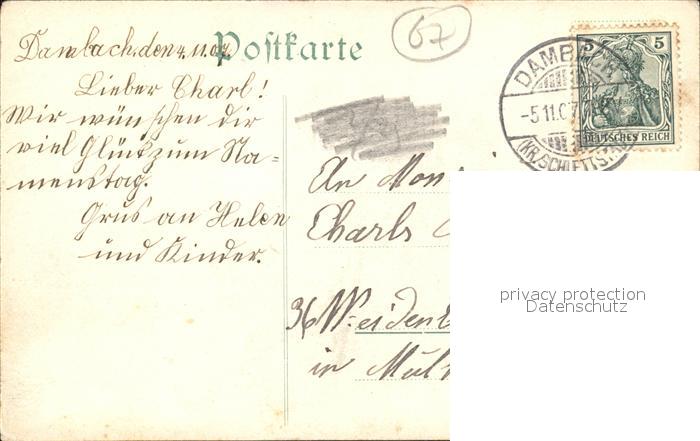 Dambach den 4. 11. 07
Postkarte
67
Lieber Charl!
Wir wünschen dir
viel Glück zum Na-
menstag.
Grus an Helen
und Kinder.
5
DEUTSCHES REICH
DAMBACH
-5.11.07
(KR. SCHLETTST.
An Mon
Charls
36 Weiden
in Mül
privacy protection
Datenschutz